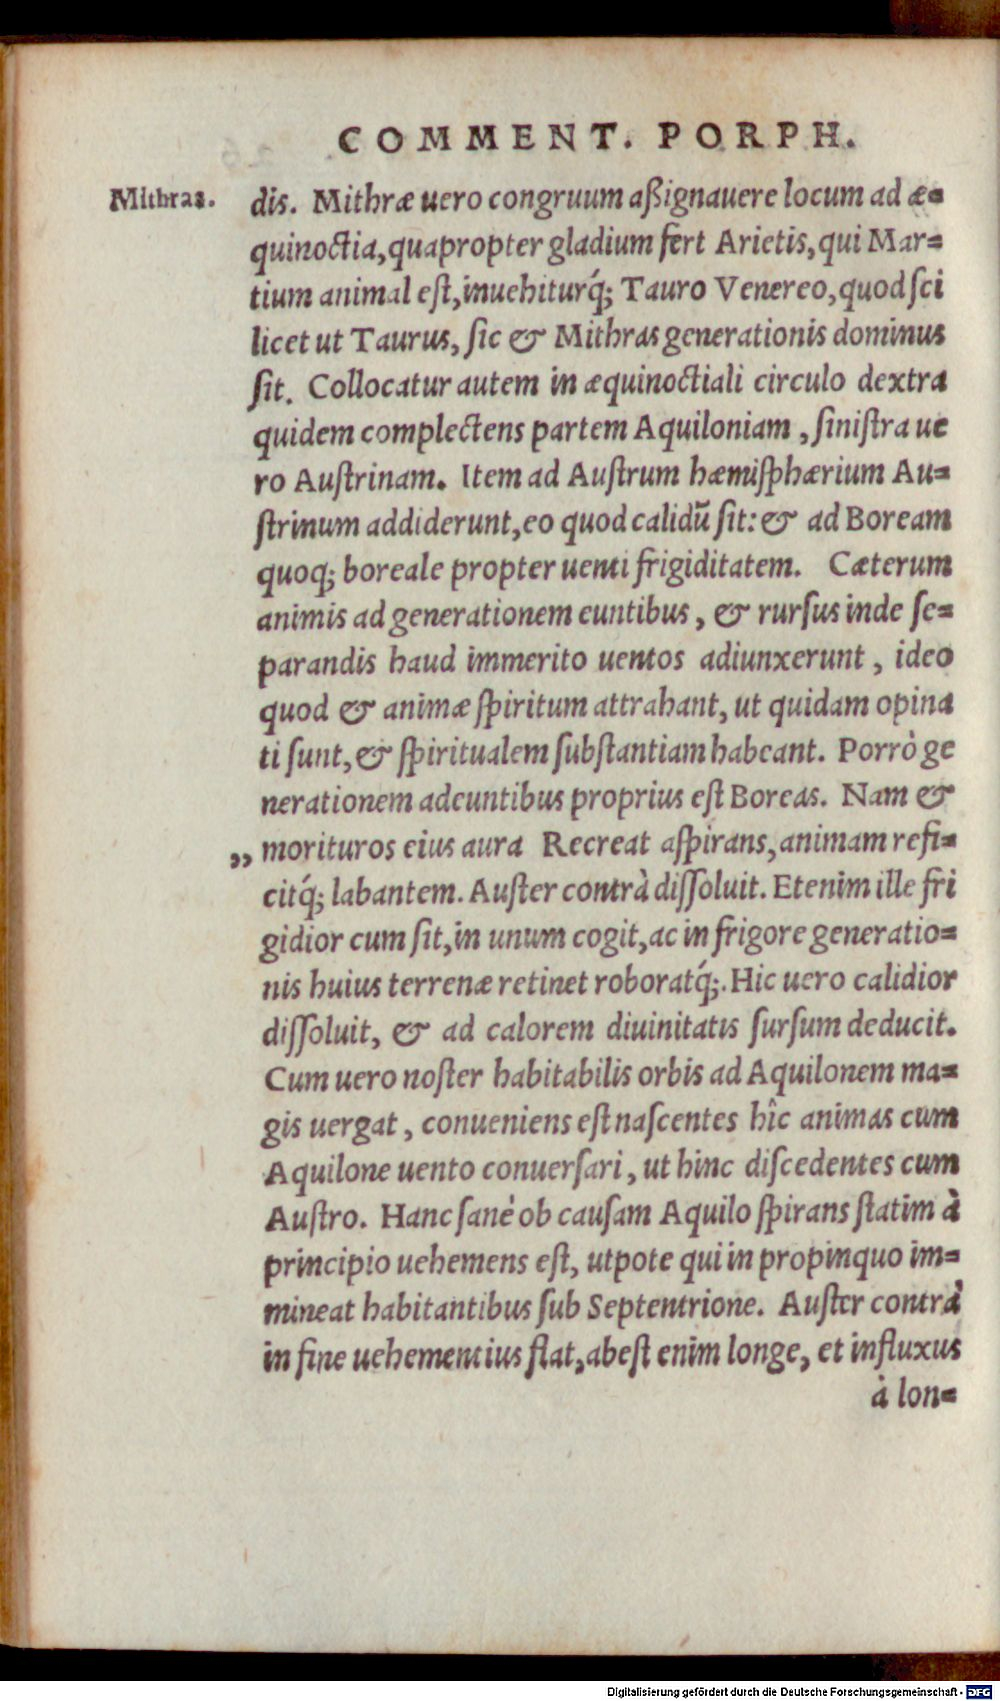 COMMENT. PORPH.
Mithras.
dis. Mithræ uero congruum aßignauere locum ad æ=
quinoctia, quapropter gladium fert Arietis, qui Mar=
tium animal est, inuehiturq́; Tauro Venereo, quod sci
licet ut Taurus, sic & Mithras generationis dominus
sit. Collocatur autem in æquinoctiali circulo dextra
quidem complectens partem Aquiloniam, sinistra ue
ro Austrinam. Item ad Austrum hæmisphærium Au=
strinum addiderunt, eo quod calidũ sit: & ad Boream
quoq; boreale propter uenti frigiditatem. Cæterum
animis ad generationem euntibus, & rursus inde se=
parandis haud immerito uentos adiunxerunt, ideo
quod & animæ spiritum attrahant, ut quidam opina
ti sunt, & spiritualem substantiam habeant. Porrò ge
nerationem adeuntibus proprius est Boreas. Nam &
„ morituros eius aura Recreat aspirans, animam refi=
citq́; labantem. Auster contrà dissoluit. Etenim ille fri
gidior cum sit, in unum cogit, ac in frigore generatio=
nis huius terrenæ retinet roboratq́;. Hic uero calidior
dissoluit, & ad calorem diuinitatis sursum deducit.
Cum uero noster habitabilis orbis ad Aquilonem ma=
gis uergat, conueniens est nascentes hîc animas cum
Aquilone uento conuersari, ut hinc discedentes cum
Austro. Hanc sanè ob causam Aquilo spirans statim à
principio uehemens est, utpote qui in propinquo im=
mineat habitantibus sub Septentrione. Auster contrà
in fine uehementius flat, abest enim longe, et influxus
à lon=
Digitalisierung gefördert durch die Deutsche Forschungsgemeinschaft - DFG